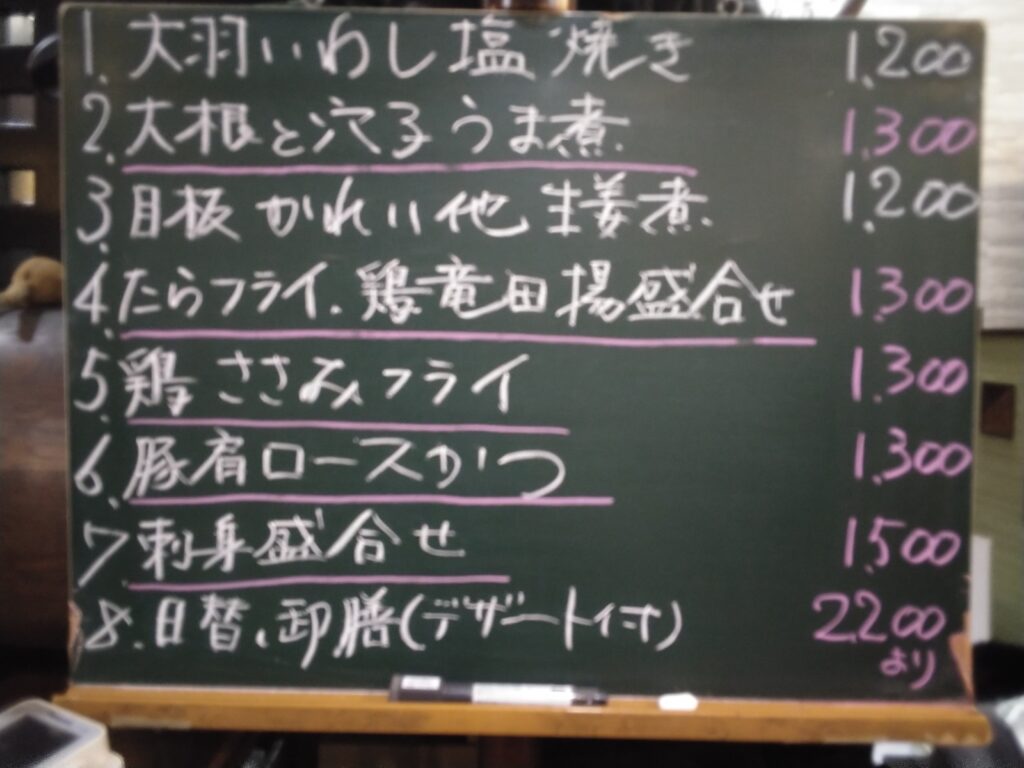 1. 大羽いわし塩焼き 1,200
2. 大根と穴子うま煮 1,300
3. 目板かれい他生姜煮 1,200
4. たらフライ.鶏竜田揚盛合せ 1,300
5. 鶏ささみフライ 1,300
6. 豚肩ロースかつ 1,300
7. 刺身盛合せ 1,500
8. 日替、御膳(デザート付) 2,200
より